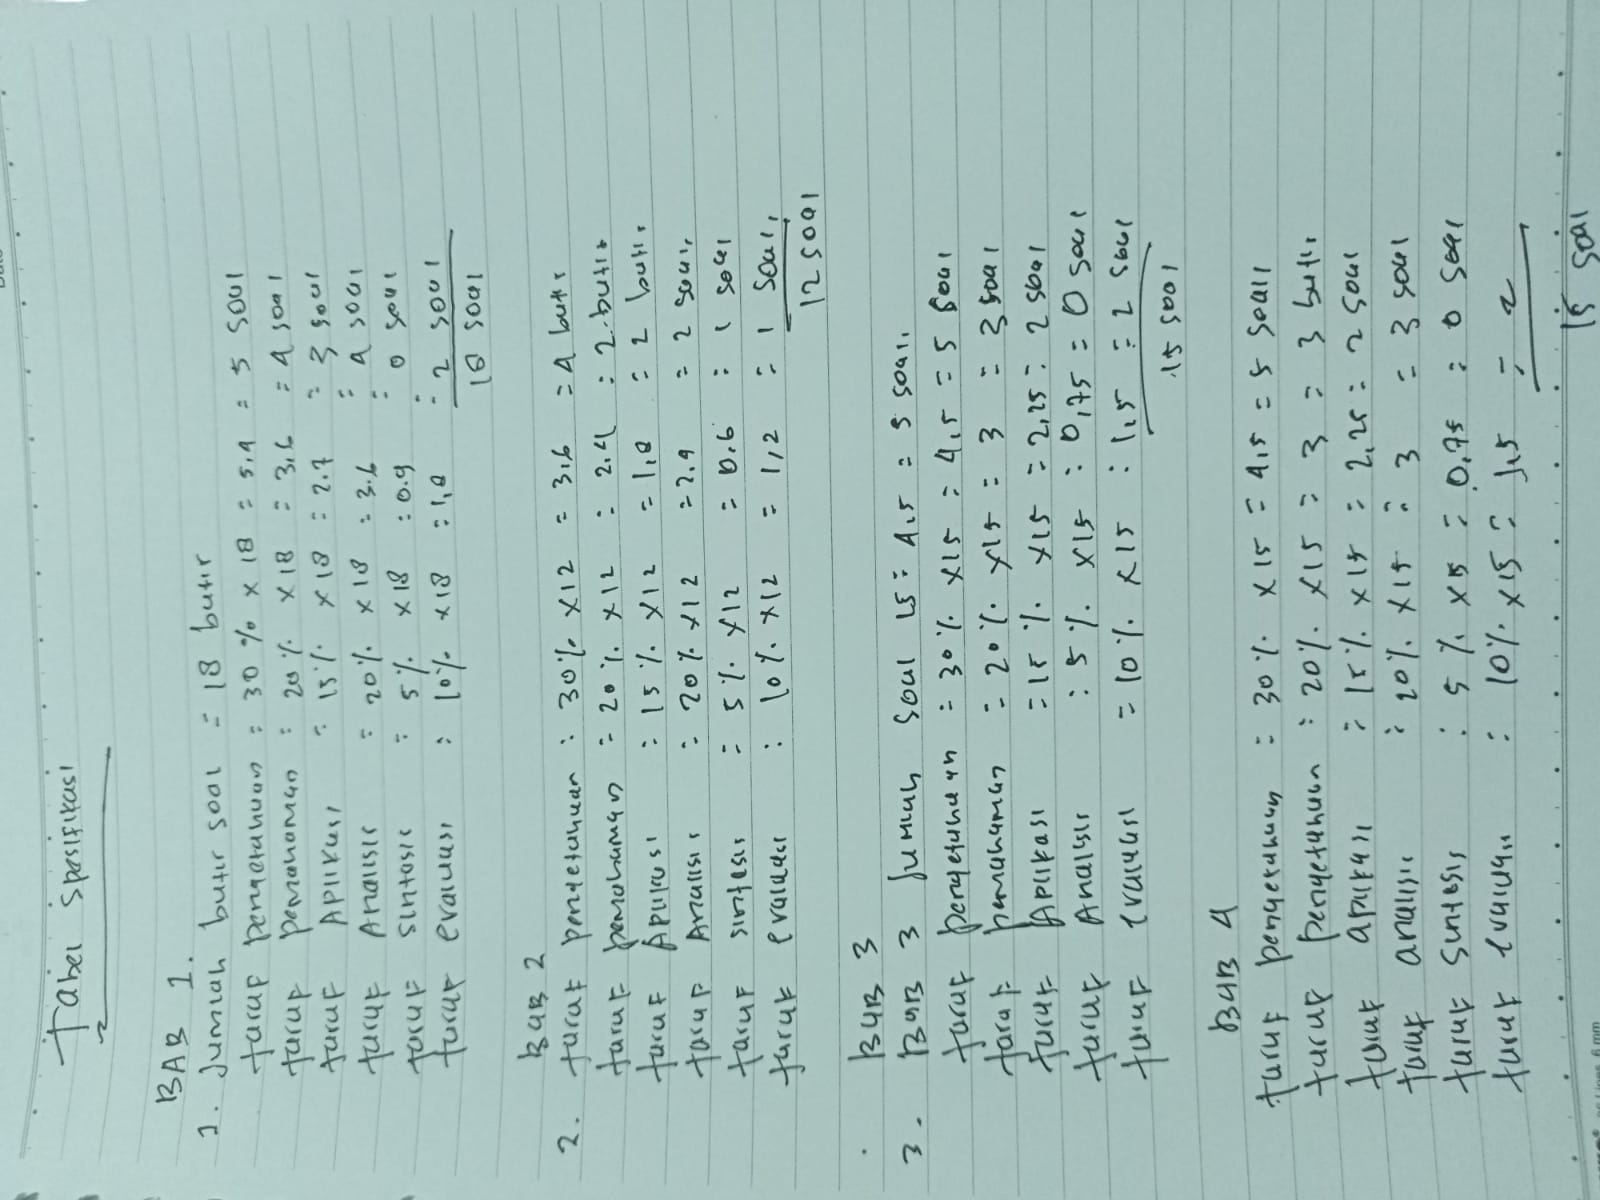 Tabel spesifikasi
BAB 1.
1. Jumlah butir soal = 18 butir
taraf pengetahuan : 30 % x 18 = 5,4 = 5 soal
taraf pemahaman : 20 % x 18 = 3,6 = 4 soal
taraf Aplikasi : 15 % x 18 = 2.7 = 3 soal
taraf Analisis = 20 % x 18 = 3.6 = 4 soal
taraf sintesis : 5 % x 18 : 0.9 = 0 soal
taraf evaluasi : 10 % x 18 = 1,8 = 2 soal
18 soal
BAB 2
2. taraf pengetahuan : 30 % x 12 = 3,6 = 4 butir
taraf pemahaman = 20 % x 12 = 2.4 : 2 butir
taraf Aplikasi : 15 % x 12 = 1,8 = 2 butir
taraf Analisis = 20 % x 12 = 2.4 = 2 soal
taraf sintesis = 5 % x 12 = 0,6 : 1 soal
taraf evaluasi : 10 % x 12 = 1,2 = 1 soal
12 soal
BAB 3
3. BAB 3 Jumlah soal 15 = 4,5 = 5 soal
taraf pengetahuan = 30 % x 15 = 4,5 = 5 soal
taraf pemahaman = 20 % x 15 = 3 = 3 soal
taraf Aplikasi = 15 % x 15 = 2,25 = 2 soal
taraf Analisis : 5 % x 15 : 0,75 = 0 soal
taraf evaluasi = 10 % x 15 : 1,5 = 2 soal
15 soal
BAB 4
taraf pengetahuan = 30 % x 15 = 4,5 = 5 soal
taraf pengetahuan : 20 % x 15 = 3 = 3 butir
taraf aplikasi = 15 % x 15 = 2,25 = 2 soal
taraf analisis : 20 % x 15 = 3 = 3 soal
taraf sintesis : 5 % x 15 = 0,75 = 0 soal
taraf evaluasi : 10 % x 15 = 1,5 = 2
15 soal